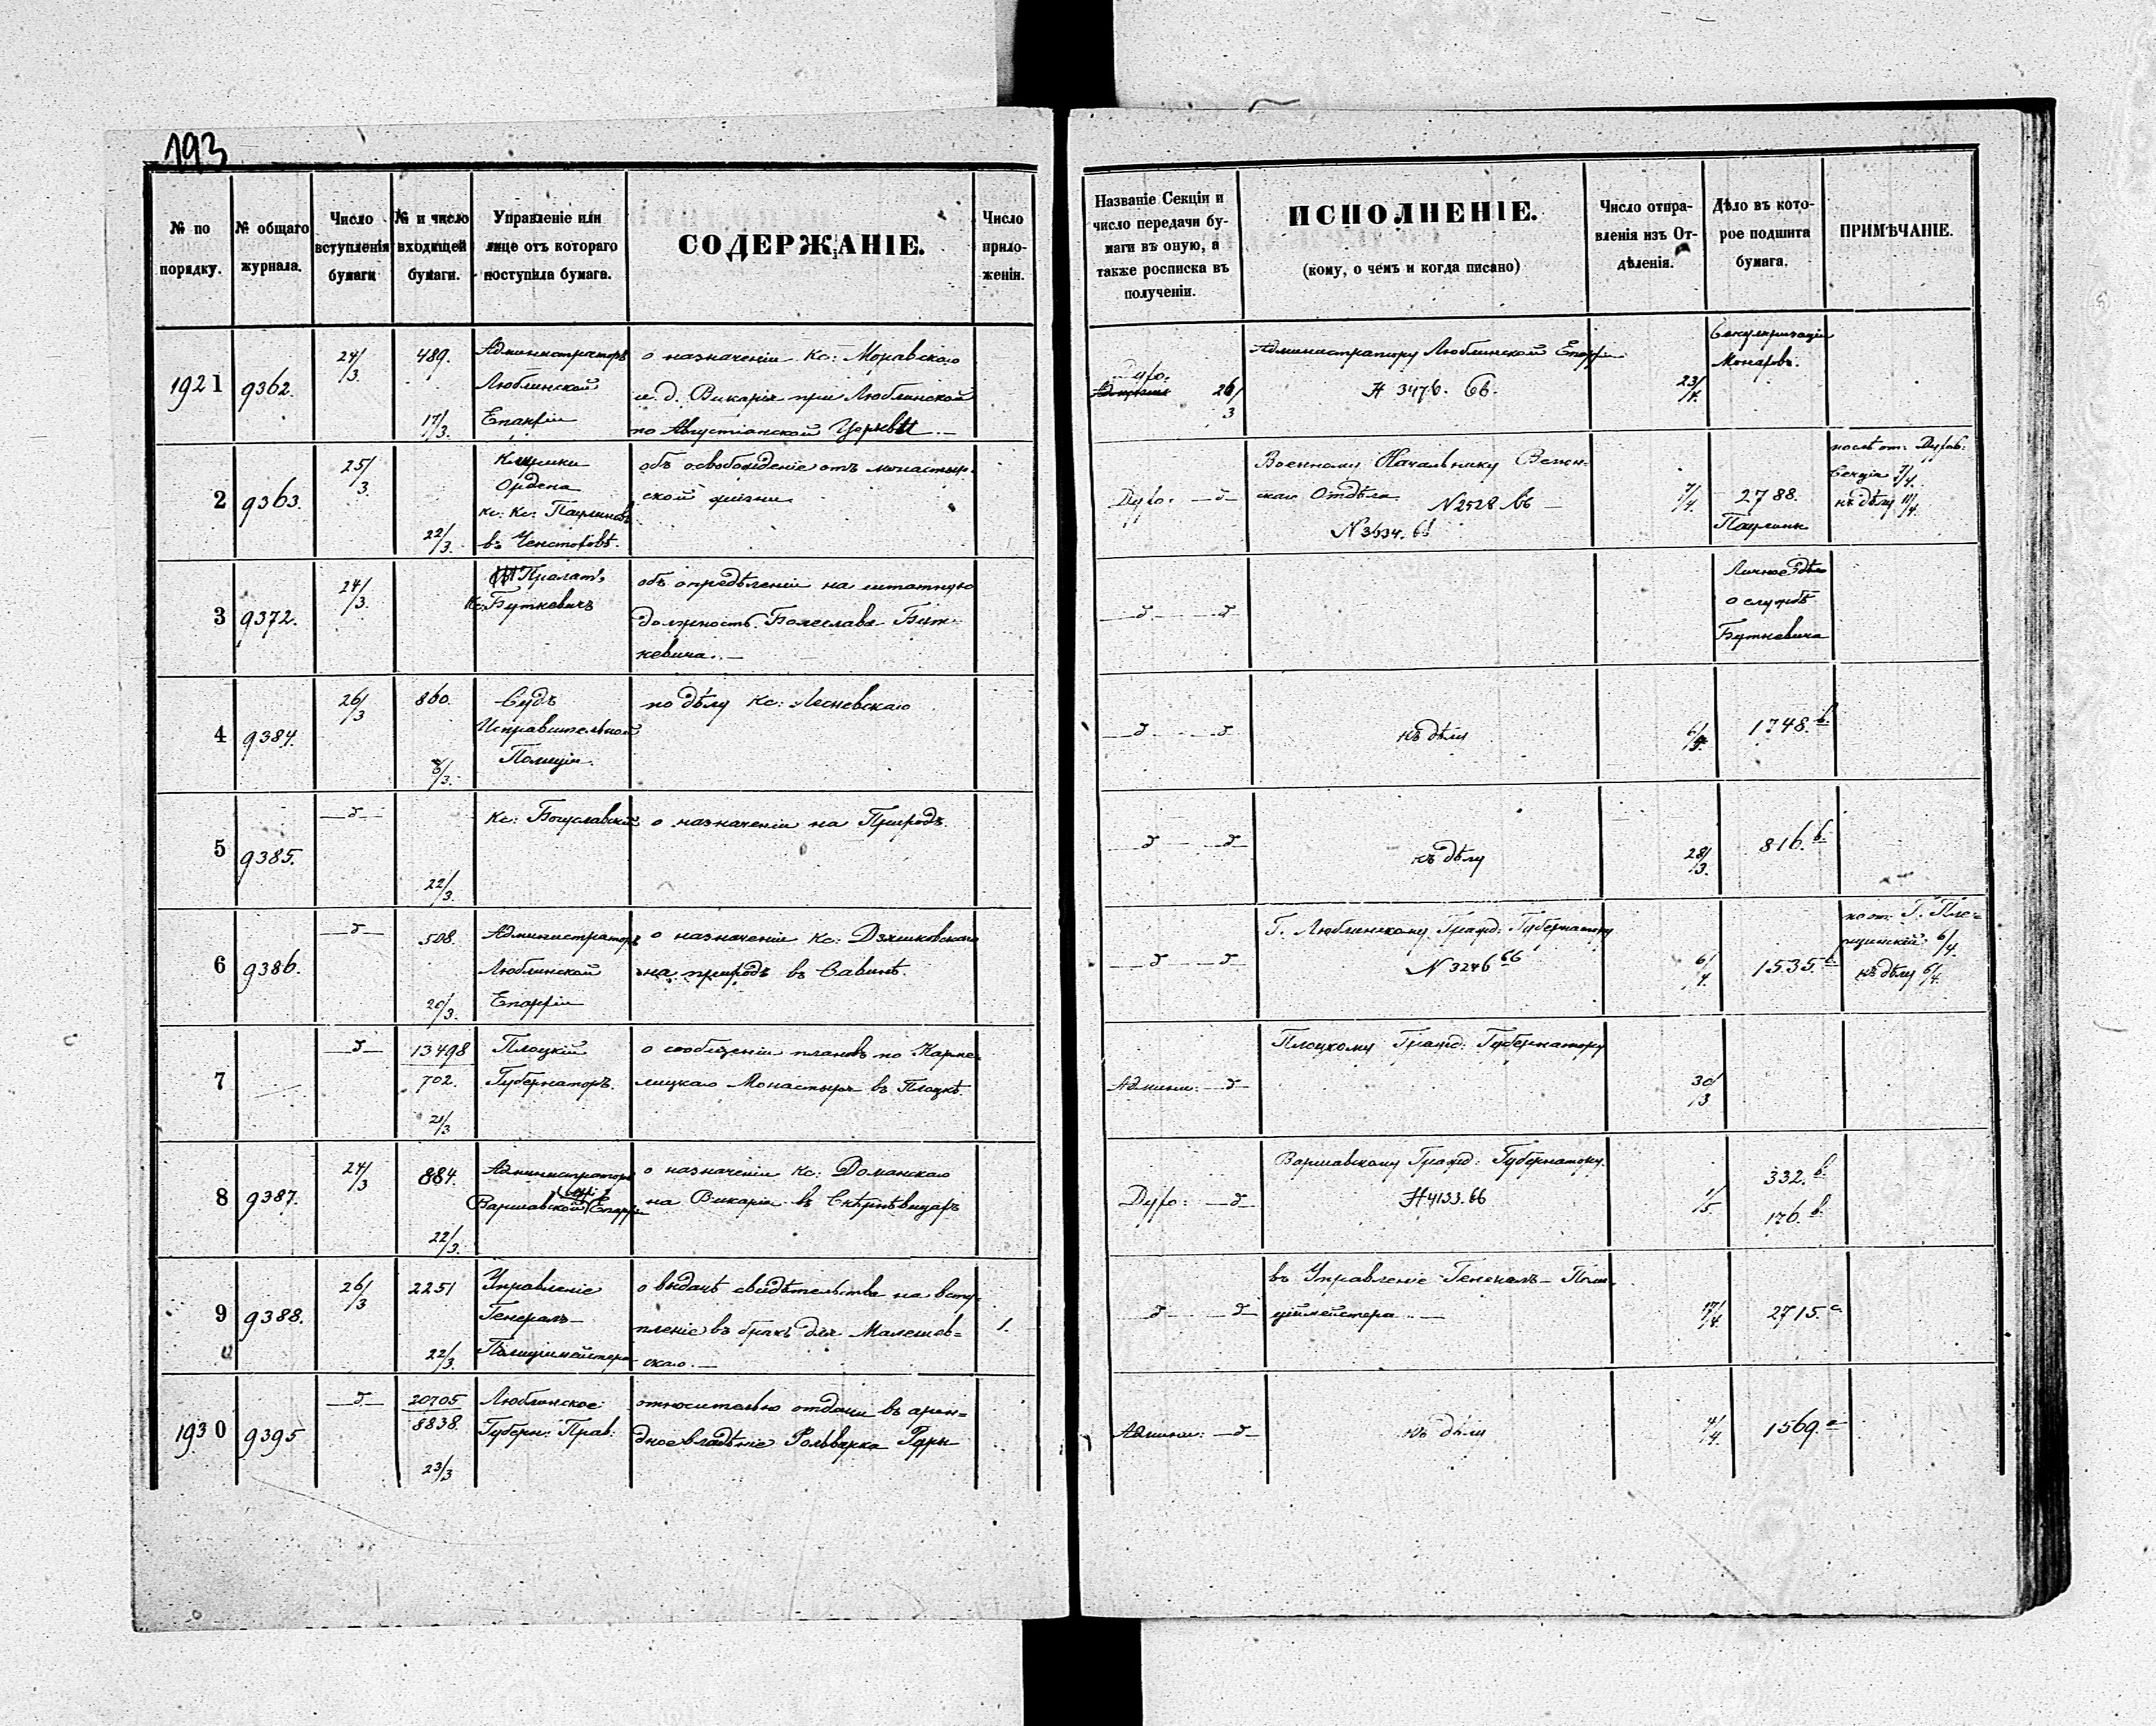 193
№ по порядку.
№ общаго журнала.
Число вступленія бумаги
№ и число входящей бумаги.
Управленіе или лице отъ котораго поступила бумага.
СОДЕРЖАНІЕ.
Число приложеніи.
Названіе Секціи и число передачи бумаги въ оную, а также росписка въ полученіи.
ИСПОЛНЕНІЕ.
(кому, о чемъ и когда писано)
Число отправленія изъ Отдѣленія.
Дѣло въ которое подшита бумага.
ПРИМѢЧАНІЕ.
1921 9362. 24/3. 489. 17/3.
Администраторъ
Люблинской
Епархіи
о назначеніи Кс: Моравскаго
и. д. Викарія при Люблинской
по Августіанской Церкви
26/3
Администратору Люблинской Епархіи
№ 3476. 66.
23/4.
Секуляризаціи
Монаховъ.
2 9363. 25/3. 22/3.
Клирики
Ордена
Кс: Кс: Паулиновъ
въ Ченстоховѣ.
объ освобожденіе отъ монастыр-
ской жизни
Духо: —д—
Военному Начальнику
скаго Отдѣла № 2528 Въ —
№ 3634. 66
7/4.
2788.
Паулины
Секція 7/4.
къ дѣлу 11/4.
3 9372. 24/3.
Пралатъ
Кс: Буткевичъ
объ опредѣленіи на штатную
должность Болеслава Бут-
кевича. —
—д— —д—
Личное дѣло
о службѣ
Буткевича
4 9384. 26/3 860. 8/3.
Судъ
Исправительной
Полиціи.
по дѣлу Кс: Лесневскаго
—д— —д—
къ дѣлу
1748. б.
5 9385. —д— 22/3.
Кс: Богуславскій
о назначеніи на Приходъ.
—д— —д—
къ дѣлу
28/3.
816. б.
6 9386. —д— 508. 20/3.
Администраторъ
Люблинской
Епархіи
о назначеніи Кс: Дзяковскаго
на приходъ въ Савинѣ.
—д— —д—
Г. Люблинскому Гражд: Губернатору
№ 3246 66
6/4.
1535.
6/4.
къ дѣлу 6/4.
7 —д— 13498
702.
21/3
Плоцкій
Губернаторъ.
о сообщеніи плановъ по Карме-
лицкаго Монастыря въ Плоцкѣ.
Админи: —д—
Плоцкому Гражд: Губернатору
30/3
8 9387. 24/3 884. 22/3.
Администраторъ
Варшавской Епархіи
о назначеніи Кс: Доманскаго
на Викарія въ Скерневицахъ
Духо: —д—
Варшавскому Гражд: Губернатору.
№ 4133. 66
1/5.
332. б.
176. б.
9 9388. 26/3 2251 22/3.
Управленіе
Генералъ-
Полиціимейстера
о выдачѣ свидѣтельства на всту-
пленіе въ бракъ для Малешев-
скаго. —
1.
—д— —д—
въ Управленіе Генералъ-Поли-
ціймейстера. —
17/4.
2715. а
1930 9395 —д— 20705
8838.
23/3
Люблинское
Губерн: Прав:
относительно отдачи въ арен-
дное владѣніе Фольварка Руры
Админи: —д—
къ дѣлу
4/4.
1569. а